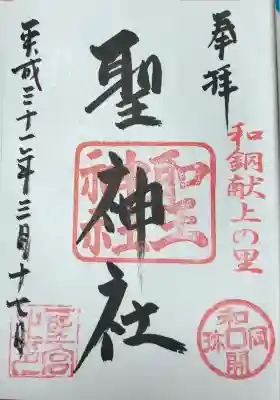 奉拝
和銅献上の里
和同開珎
聖神社
聖神社
平成三十一年三月十七日